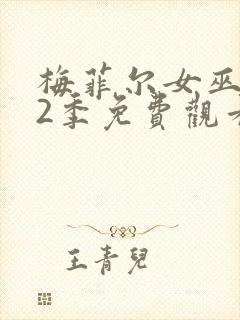 梅菲尔女巫
2季免費觀
王青兒